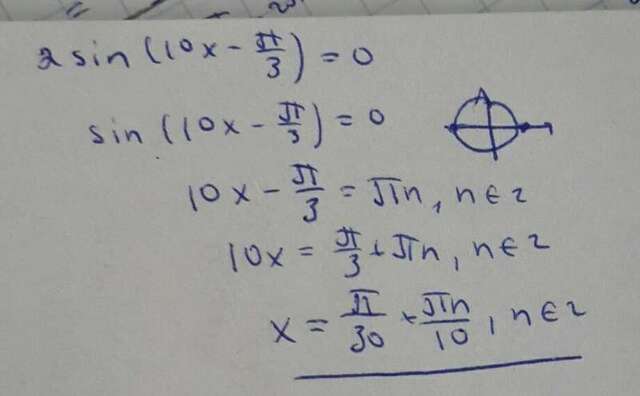 2 sin (10x - π/3) = 0
sin (10x - π/3) = 0
10x - π/3 = πn, n ∈ z
10x = π/3 + πn, n ∈ z
x = π/30 + πn/10, n ∈ z